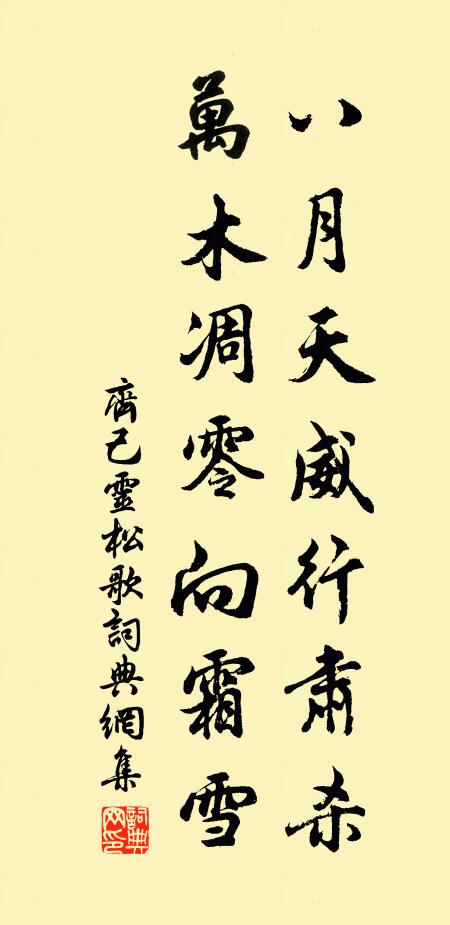 八月天威行肅杀
萬木凋零向霜雪
齊己靈松歌詞典網集
詞典网印